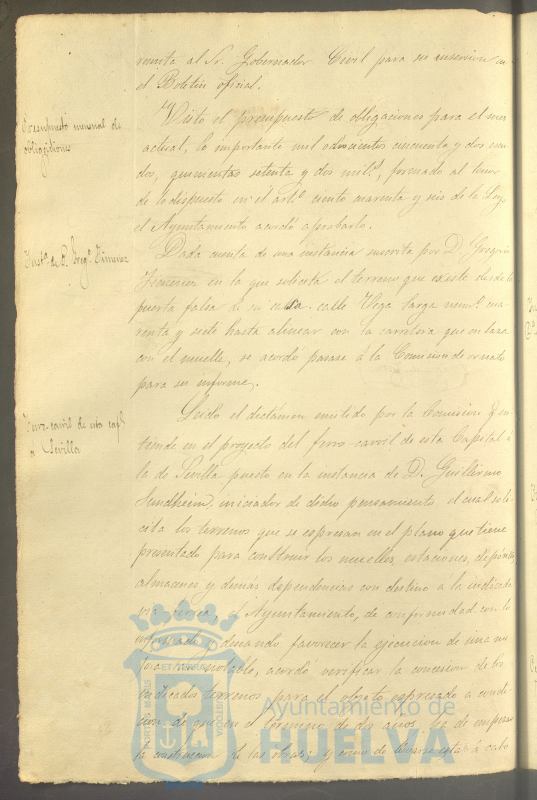 remita al Sr. Gobernador Civil para su insercion en
el Boletin oficial.
Presupuesto mensual de
obligaciones
Visto el presupuesto de obligaciones para el mes
actual, lo importante mil doscientos cincuenta y dos escu-
dos, quinientas setenta y dos mil.s, formado al tenor
de lo dispuesto en el art.o ciento cuarenta y seis de la Ley
el Ayuntamiento acordó aprobarlo.
Inst.a de D. Greg.o Jimenez
Dada cuenta de una instancia suscrita por D. Gregorio
Jimenez en la que solicita el terreno que existe desde la
puerta falsa de su casa calle Vega Larga num.o cua-
renta y siete hasta alinear con la carretera que enlaza
con el muelle, se acordó pasase á la Comision de ornato
para su informe.
Ferro-carril de esta cap.l
a Sevilla
Leido el dictámen emitido por la Comision q. en-
tiende en el proyecto del ferro-carril de esta Capital á
la de Sevilla puesto en la instancia de D. Guillermo
Sundheim, iniciador de dicho pensamiento el cual soli-
cita los terrenos que se espresan en el plano que tiene
presentado para construir los muelles, estaciones, depósitos,
almacenes y demás dependencias con destino á la indicada
via ferrea, el Ayuntamiento, de conformidad con lo
informado y deseando favorecer la ejecucion de una me-
jora tan notable, acordó verificar la concesion de los
indicados terrenos para el objeto espresado a condi-
cion de que en el termino de dos años ha de empezar
la construccion de las obras; y como de llevarse esta á cabo
Ayuntamiento de
HUELVA